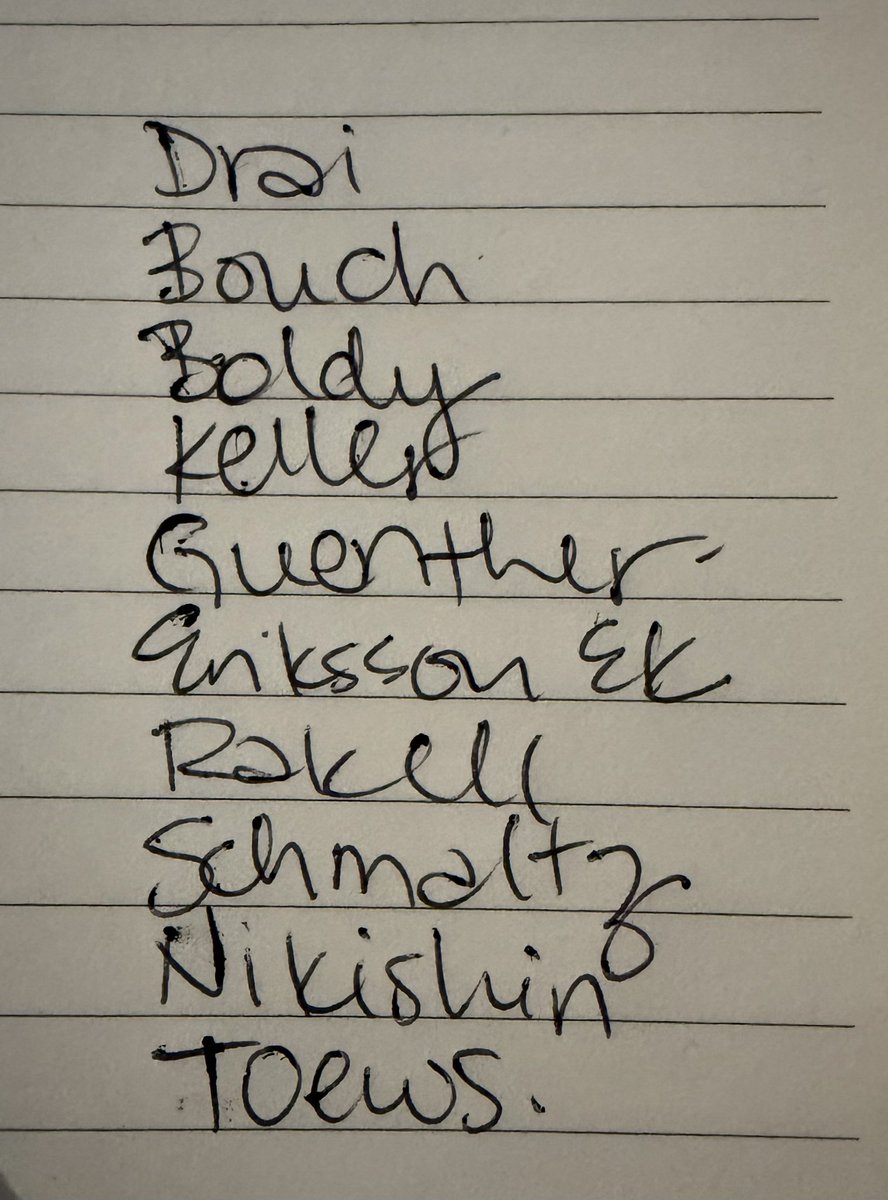 Drai
Bouch
Boldy
Keller
Guenther
Eriksson Ek
Rakell
Schmaltz
Nikishin
Toews.